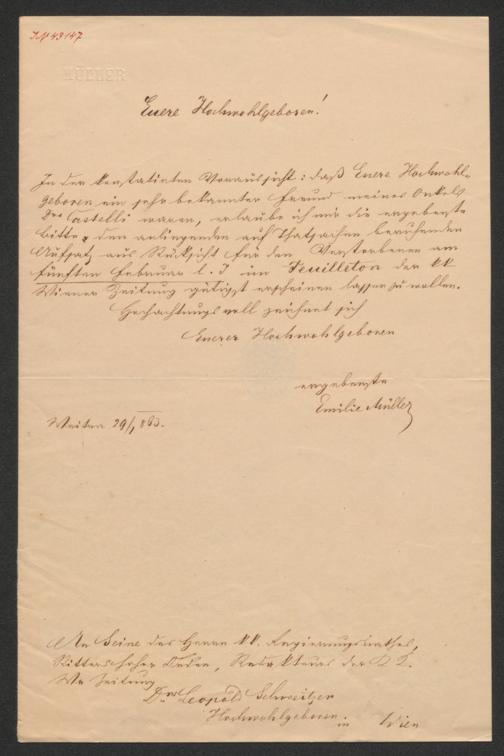 IN 49147
MÜLLER
Euere Hochwohlgeboren!
In der Voraussicht: daß Euere Hochwohl-
geboren ein sehr bekannter Freund meines Onkels
Drs Castelli waren, erlaube ich mir die ergebenste
Bitte, den anliegenden auf Thatsachen beruhenden
Aufsatz, aus Rücksicht für den Verstorbenen am
fünften Februar l. J im Feuilleton der kk
Wiener Zeitung gütigst erscheinen lassen zu wollen.
Hochachtungsvoll zeichnet sich
Euerer Hochwohlgeboren
ergebenste
Emilie Müller
29/1 863.
An Seine des Herrn kk. Regierungsrathes,
Ritters hoher Orden, Redakteurs der
Zeitung
Drs Leopold Schweitzer
Hochwohlgeboren in Wien